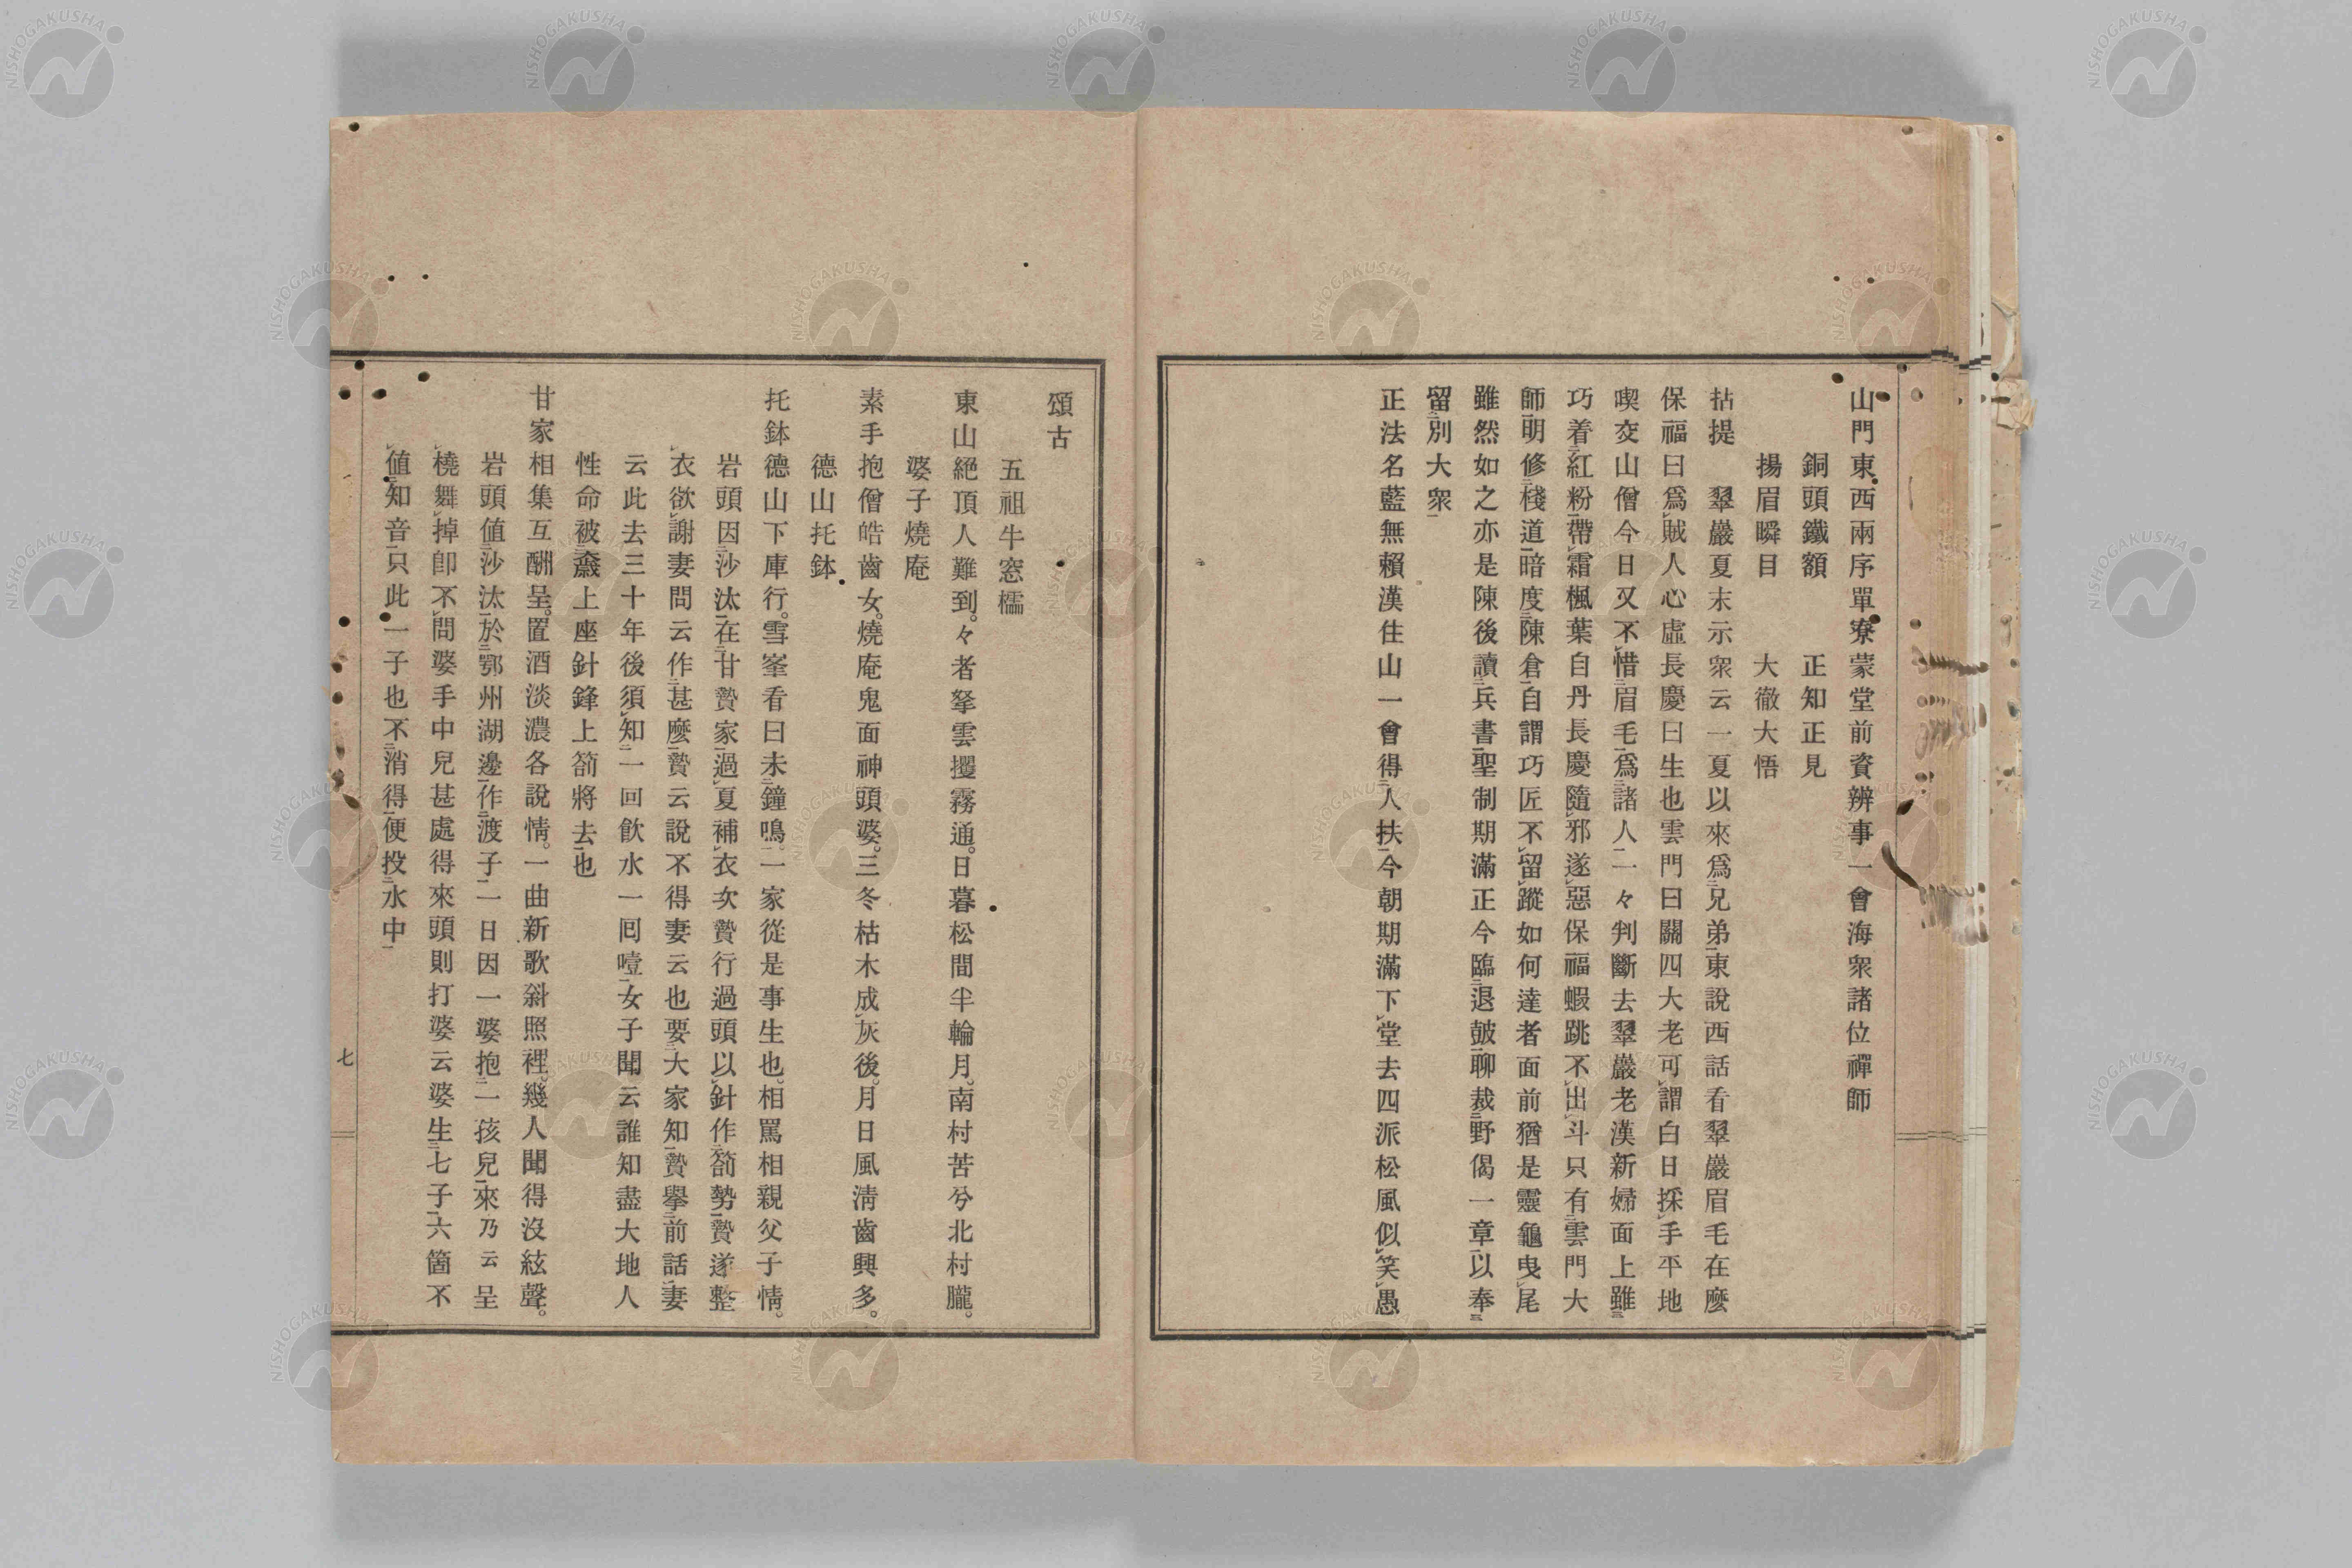 山門東西兩序單寮蒙堂前資辨事一會海衆諸位禪師
銅頭鐵額　正知正見
揚眉瞬目　大徹大悟
拈提　翠巖夏末示衆云一夏以來爲二兄弟一東說西話看翠巖眉毛在麼
保福曰爲レ賊人心虛長慶曰生也雲門曰關四大老可レ謂白日採レ手平地
喫交山僧今日又不レ惜二眉毛一爲二諸人一一々判斷去翠巖老漢新婦面上雖三
巧着二紅粉一帶レ霜楓葉自丹長慶隨レ邪遂レ惡保福蝦跳不レ出レ斗只有二雲門大
師一明修二棧道一暗度二陳倉一自謂巧匠不レ留レ蹤如何達者面前猶是靈龜曳レ尾
雖然如之亦是陳後讀二兵書一聖制期滿正今臨二退皷一聊裁二野偈一章一以奉三
留二別大衆一
正法名藍無賴漢住山一會得二人扶一今朝期滿下レ堂去四派松風似レ笑レ愚
頌古
五祖牛窓櫺
東山絕頂人難到。々者拏雲攫霧通。日暮松間半輪月。南村苦兮北村朧。
婆子燒庵
素手抱僧皓齒女。燒庵鬼面神頭婆。三冬枯木成レ灰後。月日風淸齒興多。
德山托鉢
托鉢德山下庫行。雪峯看曰未二鐘鳴一。一家從是事生也。相罵相親父子情。
岩頭因二沙汰一在二甘贄家一過レ夏補レ衣次贄行過頭以レ針作二劄勢一贄遂整
レ衣欲レ謝妻問云作二甚麼一贄云說不得妻云也要二大家知一贄擧二前話一妻
云此去三十年後須レ知二一回飮水一囘噎一女子聞云誰知盡大地人
性命被二奯上座針鋒上劄將去一也
甘家相集互酬呈。置酒淡濃各說情。一曲新歌斜照裡。幾人聞得沒絃聲。
岩頭値二沙汰一於二鄂州湖邊一作二渡子一一日因一婆抱二一孩兒一來乃云呈
レ橈舞レ掉卽不レ問婆手中兒甚處得來頭則打婆云婆生二七子一六箇不
レ値二知音一只此一子也不二消得一便投二水中一
七